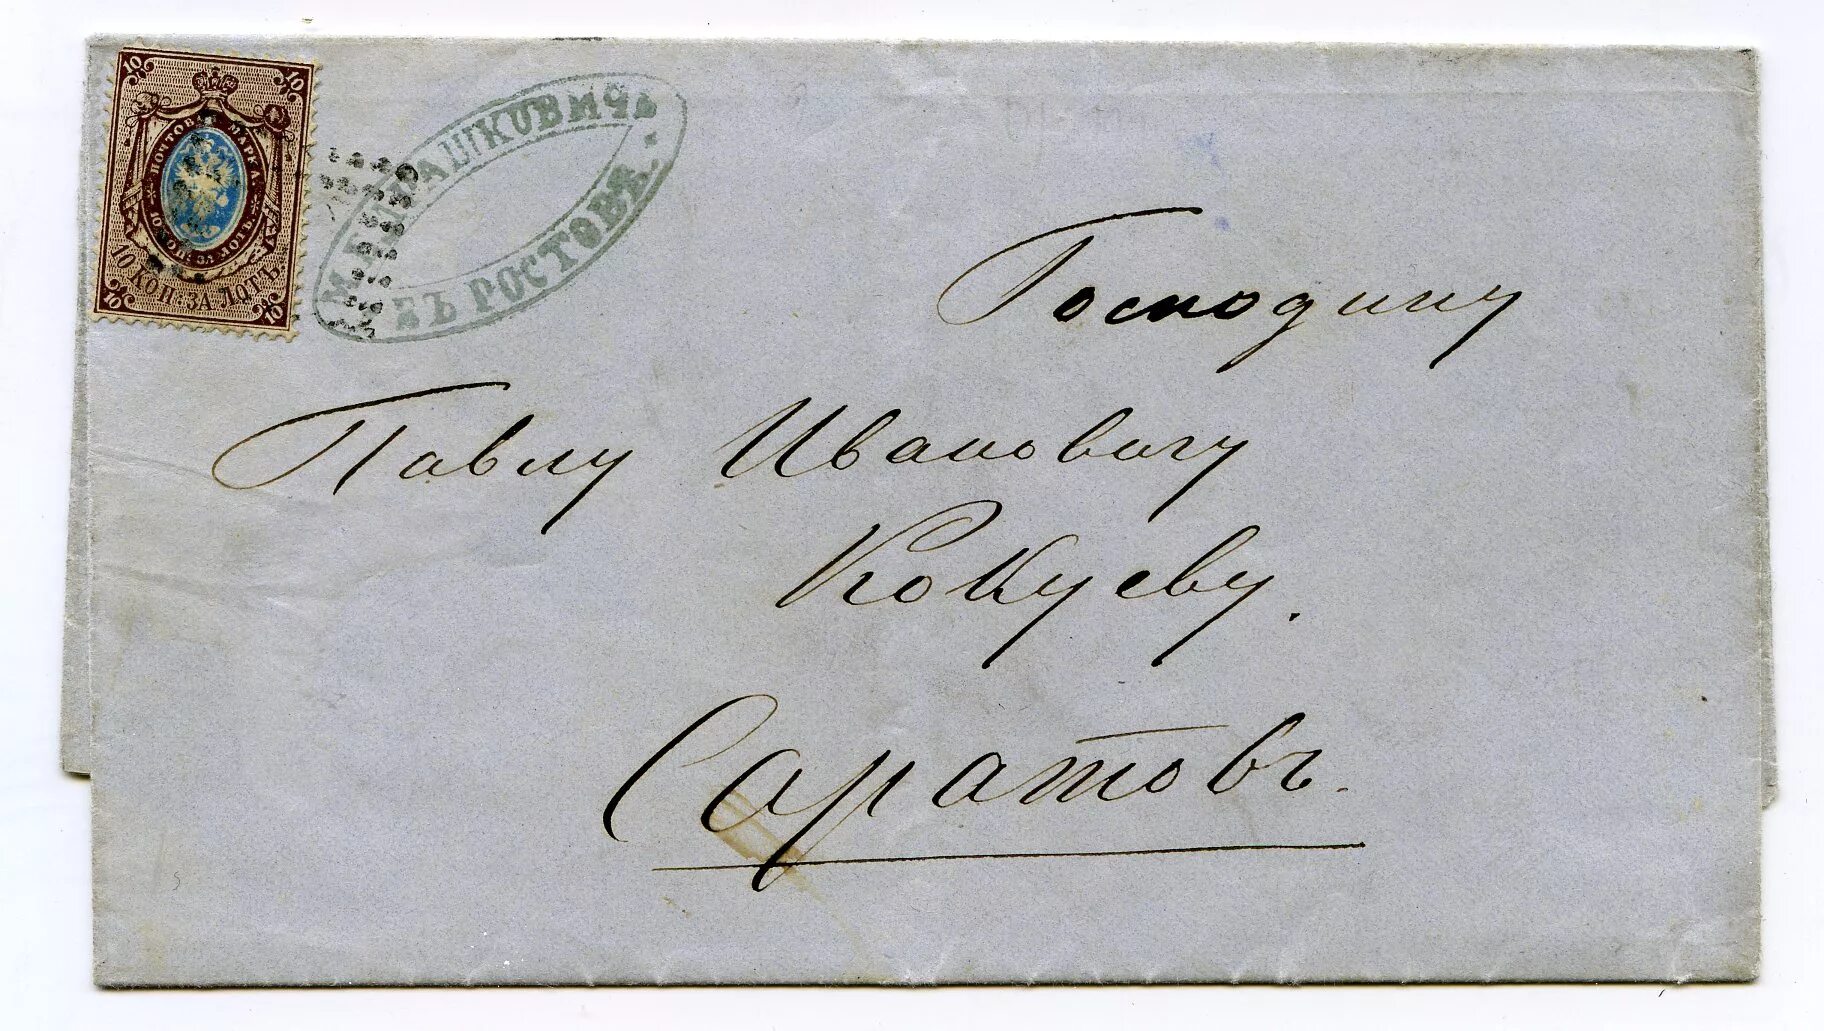 10 10
ПОЧТОВАЯ МАРКА
10 КОП. ЗА ЛОТЪ
10 КОП. ЗА ЛОТЪ.
10 10
ИЗЪ РОСТОВА.
Господину
Павлу Ивановичу
Кокуеву.
Саратовъ.